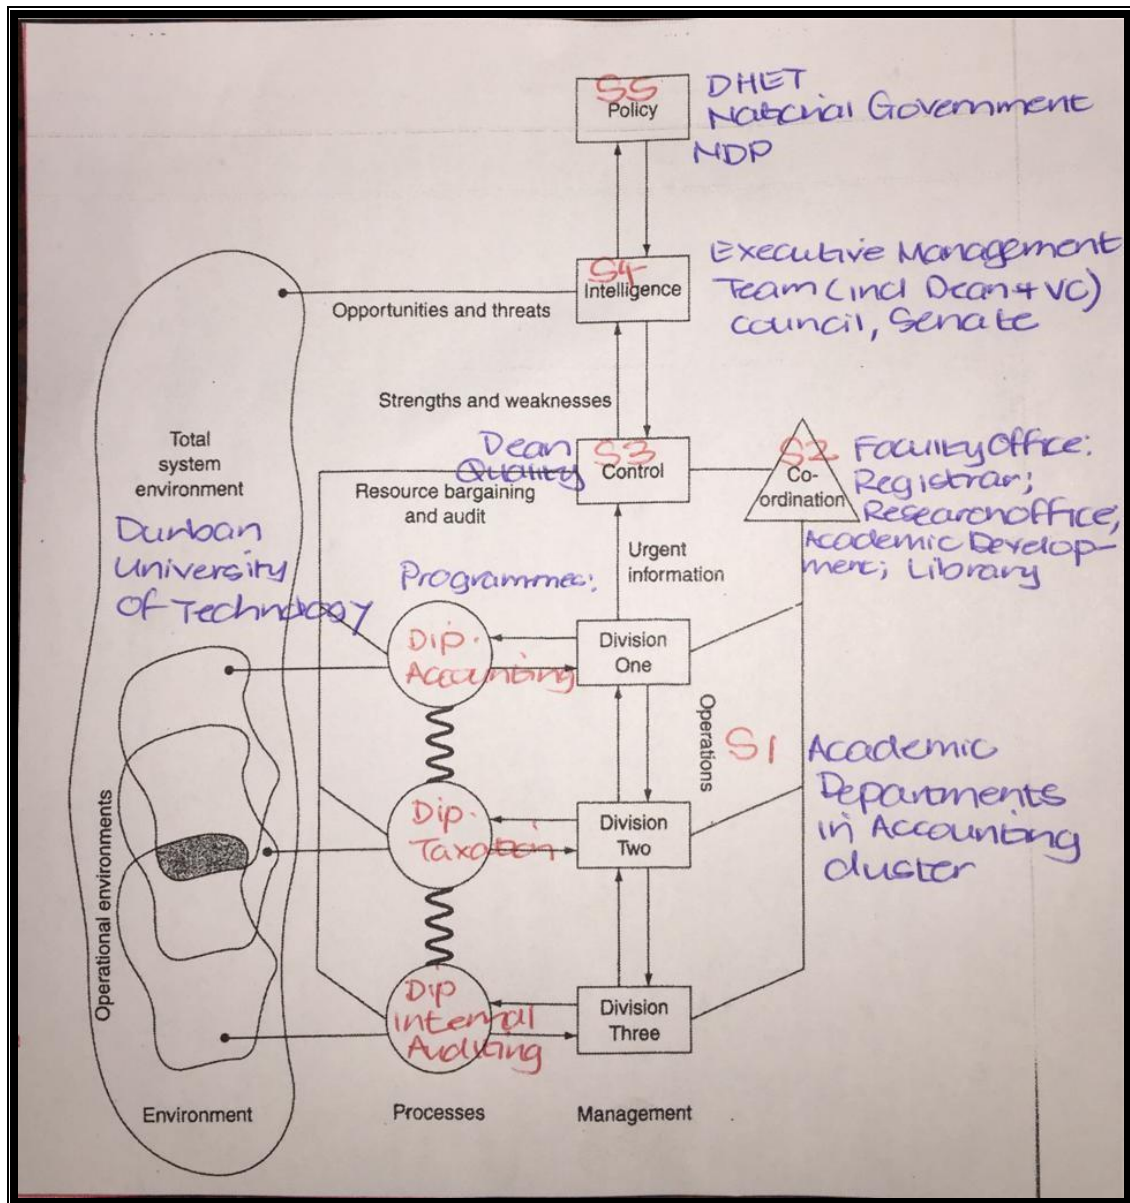 S5
Policy
DHET
National Government
NDP
S4
Intelligence
Executive Management
Team (incl Dean + VC)
Council, Senate
Opportunities and threats
Strengths and weaknesses
Total
system
environment
Dean
Quality
S3
Control
S2
Co-
ordination
Faculty Office:
Registrar;
Research office,
Academic Develop-
ment; Library
Resource bargaining
and audit
Durban
University
Of Technology
Urgent
information
Programmes:
Dip.
Accounting
Division
One
Operations
S1
Academic
Departments
in Accounting
cluster
Dip.
Taxation
Division
Two
Operational environments
Dip
Internal
Auditing
Division
Three
Environment
Processes
Management